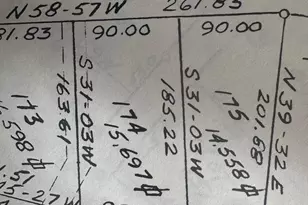 N58-57W 261.83
81.83 90.00 90.00
163.61
S31-03W
173
14,598 ⏍
185.22
S31-03W
174
15,697 ⏍
N39-32E
201.68
175
14,558 ⏍